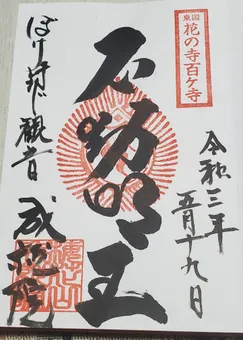 東国
花の寺百ヶ寺
令和三年
五月十九日
不動明王
ぼけ封じ観音
成就院